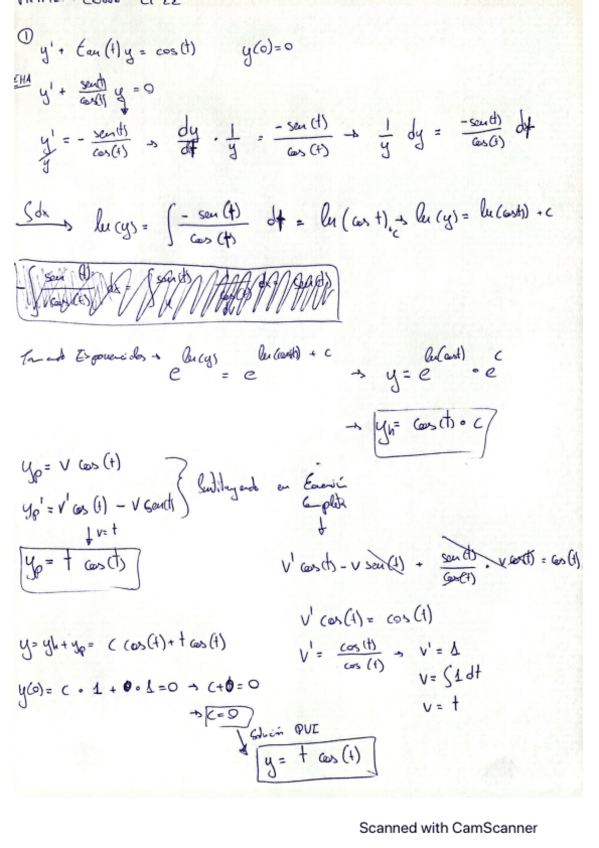 ①
y' + tan(t) y = cos(t)    y(0)=0
EHA y' + sen(t)/cos(t) y = 0
y'/y = - sen(t)/cos(t) → dy/dt · 1/y = -sen(t)/cos(t) → 1/y dy = -sen(t)/cos(t) dt
∫dx → ln(y) = ∫ -sen(t)/cos(t) dt = ln(cos t)+c → ln(y) = ln(cos t) + c
Tomando Exponenciales → e^ln(y) = e^(ln(cos t) + c) → y = e^ln(cos t) · e^c
→ yh = cos(t) · c
yp = v cos(t)
yp' = v' cos(t) - v sen(t) } Sustituyendo en Ecuación Completa
↓ v=t
yp = t cos(t)
v' cos(t) - v sen(t) + sen(t)/cos(t) · v cos(t) = cos(t)
v' cos(t) = cos(t)
v' = cos(t)/cos(t) → v' = 1
v = ∫1 dt
v = t
y = yh + yp = c cos(t) + t cos(t)
y(0) = c · 1 + 0 · 1 = 0 → c + 0 = 0
→ c = 0
Solución PVI
y = t cos(t)
Scanned with CamScanner